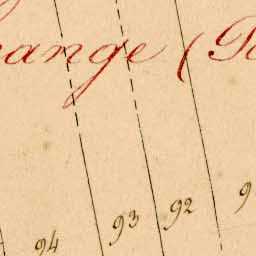 ange (
94 93 92 9